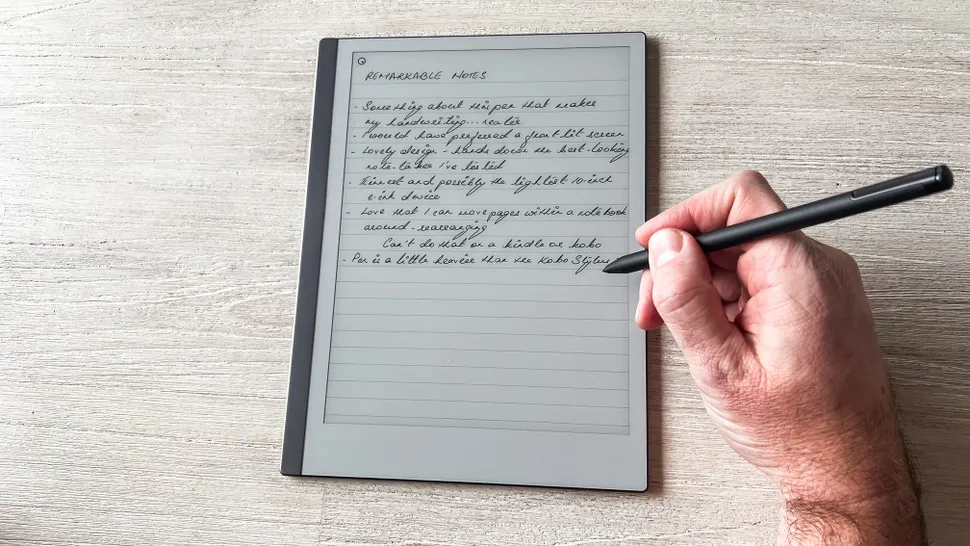 REMARKABLE NOTES
- Something about this pen that makes
my handwriting... neater
- I would have preferred a front-lit screen
- Lovely design - hands down the best-looking
note-taker I've tested
- Thinnest and possibly the lightest 10-inch
e-ink device
- Love that I can move pages within a notebook
around - rearranging
Can't do that on a kindle or kobo
- Pen is a little heavier than the Kobo Stylus